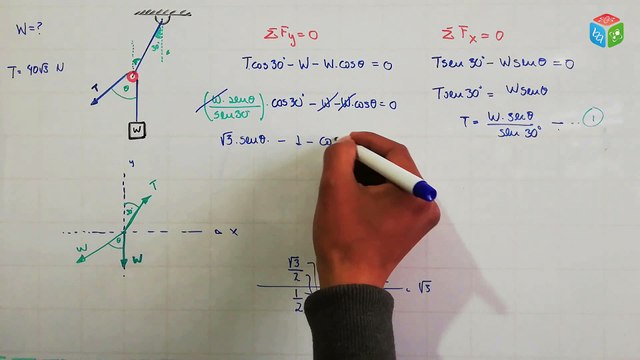 W=?
T= 40√3 N
30°
T
θ
W
ΣFy=0
Tcos30° - W - W.cosθ = 0
(W.senθ/sen30°).cos30° - W - W.cosθ = 0
√3.senθ. - 1 - co
ΣFx=0
Tsen30° - Wsenθ = 0
Tsen30° = Wsenθ
T = W.senθ/sen30° --- 1
y
T
30°
x
θ
W
W
√3/2
1/2
= √3